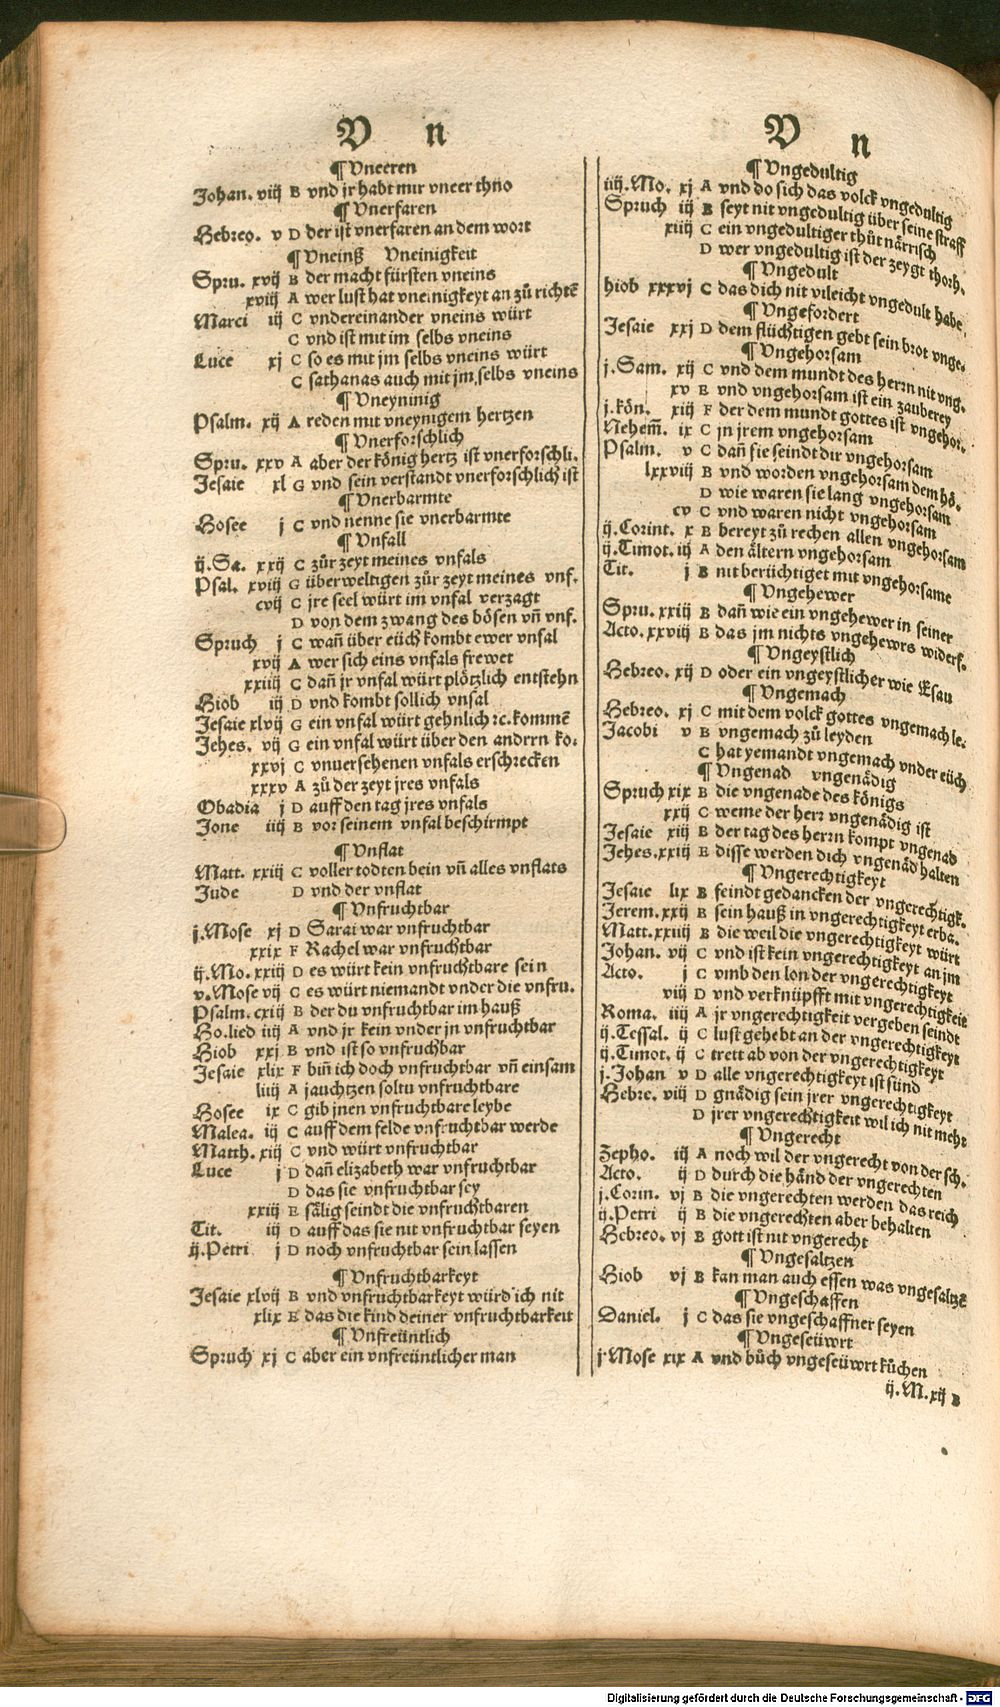 V n
¶ Vneeren
Johan. viij B vnd jr habt mir vneer thno
¶ Vnerfaren
Hebreo. v D der ist vnerfaren an dem wort
¶ Vneinß Vneinigkeit
Spru. xvij B der macht fürsten vneins
xviij A wer lust hat vneinigkeyt an zů richtē
Marci iij C vndereinander vneins würt
C vnd ist mit im selbs vneins
Luce xj C so es mit jm selbs vneins würt
C sathanas auch mit jm selbs vneins
¶ Vneyninig
Psalm. xij A reden mit vneynigem hertzen
¶ Vnerforschlich
Spru. xxv A aber der könig hertz ist vnerforschli.
Jesaie xl G vnd sein verstandt vnerforschlich ist
¶ Vnerbarmte
Hosee j C vnd nenne sie vnerbarmte
¶ Vnfall
ij.Sa. xxij C zůr zeyt meines vnfals
Psal. xviij G überweltigen zůr zeyt meines vnf.
cvij C jre seel würt im vnfal verzagt
D von dem zwang des bösen vñ vnf.
Spruch j C wañ über eüch kombt ewer vnfal
xvij A wer sich eins vnfals frewet
xxiiij C dañ jr vnfal würt plötzlich entstehn
Hiob iij D vnd kombt sollich vnfal
Jesaie xlvij G ein vnfal würt gehnlich ꝛc. kommē
Jehes. vij G ein vnfal würt über den andrrn ko.
xxvj C vnuersehenen vnfals erschrecken
xxxv A zů der zeyt jres vnfals
Obadia j D auff den tag jres vnfals
Jone iiij B vor seinem vnfal beschirmpt
¶ Vnflat
Matt. xxiij C voller todten bein vñ alles vnflats
Jude D vnd der vnflat
¶ Vnfruchtbar
j.Mose xj D Sarai war vnfruchtbar
xxix F Rachel war vnfruchtbar
ij.Mo. xxiij D es würt kein vnfruchtbare sein
v.Mose vij C es würt niemandt vnder die vnfru.
Psalm. cxiij B der du vnfruchtbar im hauß
Ho.lied iiij A vnd jr kein vnder jn vnfruchtbar
Hiob xxj B vnd ist so vnfruchbar
Jesaie xlix F biñ ich doch vnfruchtbar vñ einsam
liiij A jauchtzen soltu vnfruchtbare
Hosee ix C gib jnen vnfruchtbare leybe
Malea. iij C auff dem felde vnfruchtbar werde
Matth. xiij C vnd würt vnfruchtbar
Luce j D dañ elizabeth war vnfruchtbar
D das sie vnfruchtbar sey
xxiij E sälig seindt die vnfruchtbaren
Tit. iij D auff das sie nit vnfruchtbar seyen
ij.Petri j D noch vnfruchtbar sein lassen
¶ Vnfruchtbarkeyt
Jesaie xlvij B vnd vnfruchtbarkeyt würd ich nit
xlix E das die kind deiner vnfruchtbarkeit
¶ Vnfreüntlich
Spruch xj C aber ein vnfreüntlicher man
V n
¶ Vngedultig
iiij.Mo. xj A vnd do sich das volck vngedultig
Spruch iij B seyt nit vngedultig über seine straff
xiiij C ein vngedultiger thůt närrisch
D wer vngedultig ist der zeygt thorh.
¶ Vngedult
hiob xxxvj C das dich nit vileicht vngedult habe
¶ Vngefordert
Jesaie xxj D dem flüchtigen gebt sein brot vnge.
¶ Vngehorsam
j.Sam. xij C vnd dem mundt des herrn nit vng.
xv E vnd vngehorsam ist ein zauberey
j.kön. xiij F der dem mundt gottes ist vngehor.
Nehem̃. ix C jn jrem vngehorsam
Psalm. v C dañ sie seindt dir vngehorsam
lxxviij B vnd worden vngehorsam dem hö.
D wie waren sie lang vngehorsam
cv C vnd waren nicht vngehorsam
ij.Corint. x B bereyt zů rechen allen vngehorsam
ij.Timot. iij A den ältern vngehorsam
Tit. j B nit berüchtiget mit vngehorsame
¶ Vngehewer
Spru. xxiij B dañ wie ein vngehewer in seiner
Acto. xxviij B das jm nichts vngehewrs widerf.
¶ Vngeystlich
Hebreo. xij D oder ein vngeystlicher wie Esau
¶ Vngemach
Hebreo. xj C mit dem volck gottes vngemach le.
Jacobi v B vngemach zů leyden
C hat yemandt vngemach vnder eüch
¶ Vngenad vngenädig
Spruch xix B die vngenadt des königs
xxij C weme der herr vngenädig ist
Jesaie xiij B der tag des herrn kompt vngenad
Jehes. xxiij E disse werden dich vngenäd halten
¶ Vngerechtigkeyt
Jesaie lix B feindt gedancken der vngerechtigk.
Jerem. xxij B sein hauß in vngerechtigkeyt erba.
Matt. xxiiij B die weil die vngerechtigkeyt würt
Johan. vij C vnd ist kein vngerechtigkeyt an jm
Acto. j C vmb den lon der vngerechtigkeyt
viij D vnd verknüpfft mit vngerechtigkeit
Roma. iiij A jr vngerechtigkeit vergeben seindt
ij.Tessal. ij C lust gehebt an der vngerechtigkeyt
ij.Timot. ij C trett ab von der vngerechtigkeyt
j.Johan v D alle vngerechtigkeyt ist sünd
Hebre. viij D gnädig sein jrer vngerechtigkeyt
D jrer vngerechtigkeit wil ich nit meht
¶ Vngerecht
Zepho. iij A noch wil der vngerecht von der sch.
Acto. ij D durch die händ der vngerechten
j.Corin. vj B die vngerechten werden das reich
ij.Petri ij B die vngerechten aber behalten
Hebreo. vj B gott ist nit vngerecht
¶ Vngesaltzen
Hiob vj B kan man auch essen was vngesaltzē
¶ Vngeschaffen
Daniel. j C das sie vngeschaffner seyen
¶ Vngeseüwrt
j.Mose xix A vnd bůch vngeseüwrt kůchen
ij.M. xij B
Digitalisierung gefördert durch die Deutsche Forschungsgemeinschaft - DFG